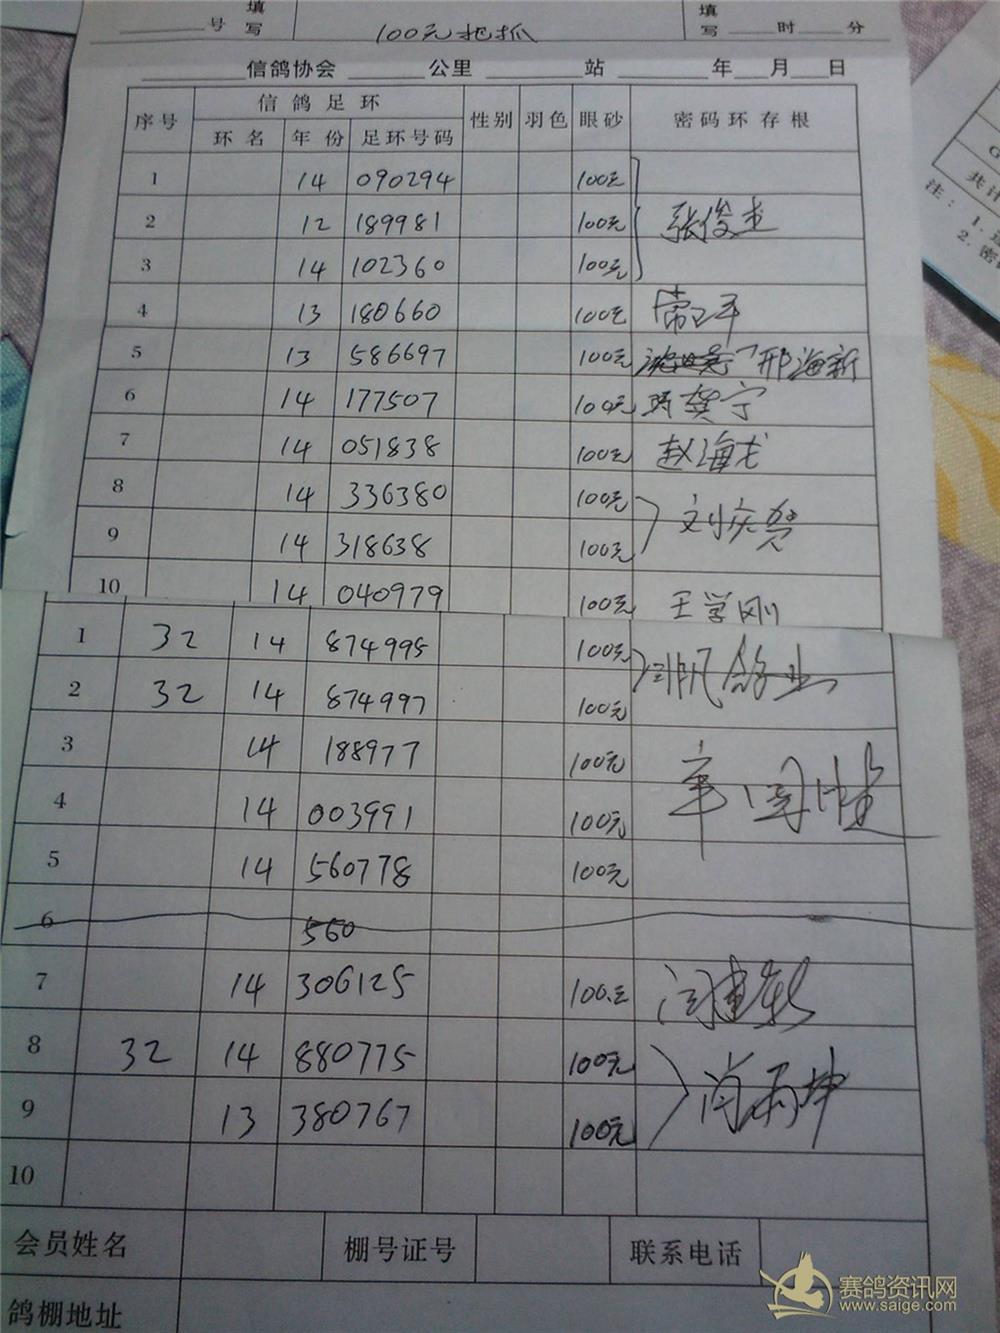 号 填写 100元把抓 填写 时 分
信鸽协会 公里 站 年 月 日
序号 信鸽足环 性别 羽色 眼砂 密码环存根
环名 年份 足环号码
1 14 090294 100元
2 12 189981 100元 张俊杰
3 14 102360 100元
4 13 180660 100元
5 13 586697 100元 邢海新
6 14 177507 100元 龚宁
7 14 051838 100元 赵海龙
8 14 336380 100元 刘庆贺
9 14 318638 100元
10 14 040979 100元 王学刚
1 32 14 874995 100元 鸽业
2 32 14 874997 100元
3 14 188977 100元
4 14 003991 100元
5 14 560778 100元
6 560
7 14 306125 100元
8 32 14 880775 100元
9 13 380767 100元
10
会员姓名 棚号证号 联系电话
鸽棚地址
共计
注：1.
2. 密
赛鸽资讯网
www.saige.com